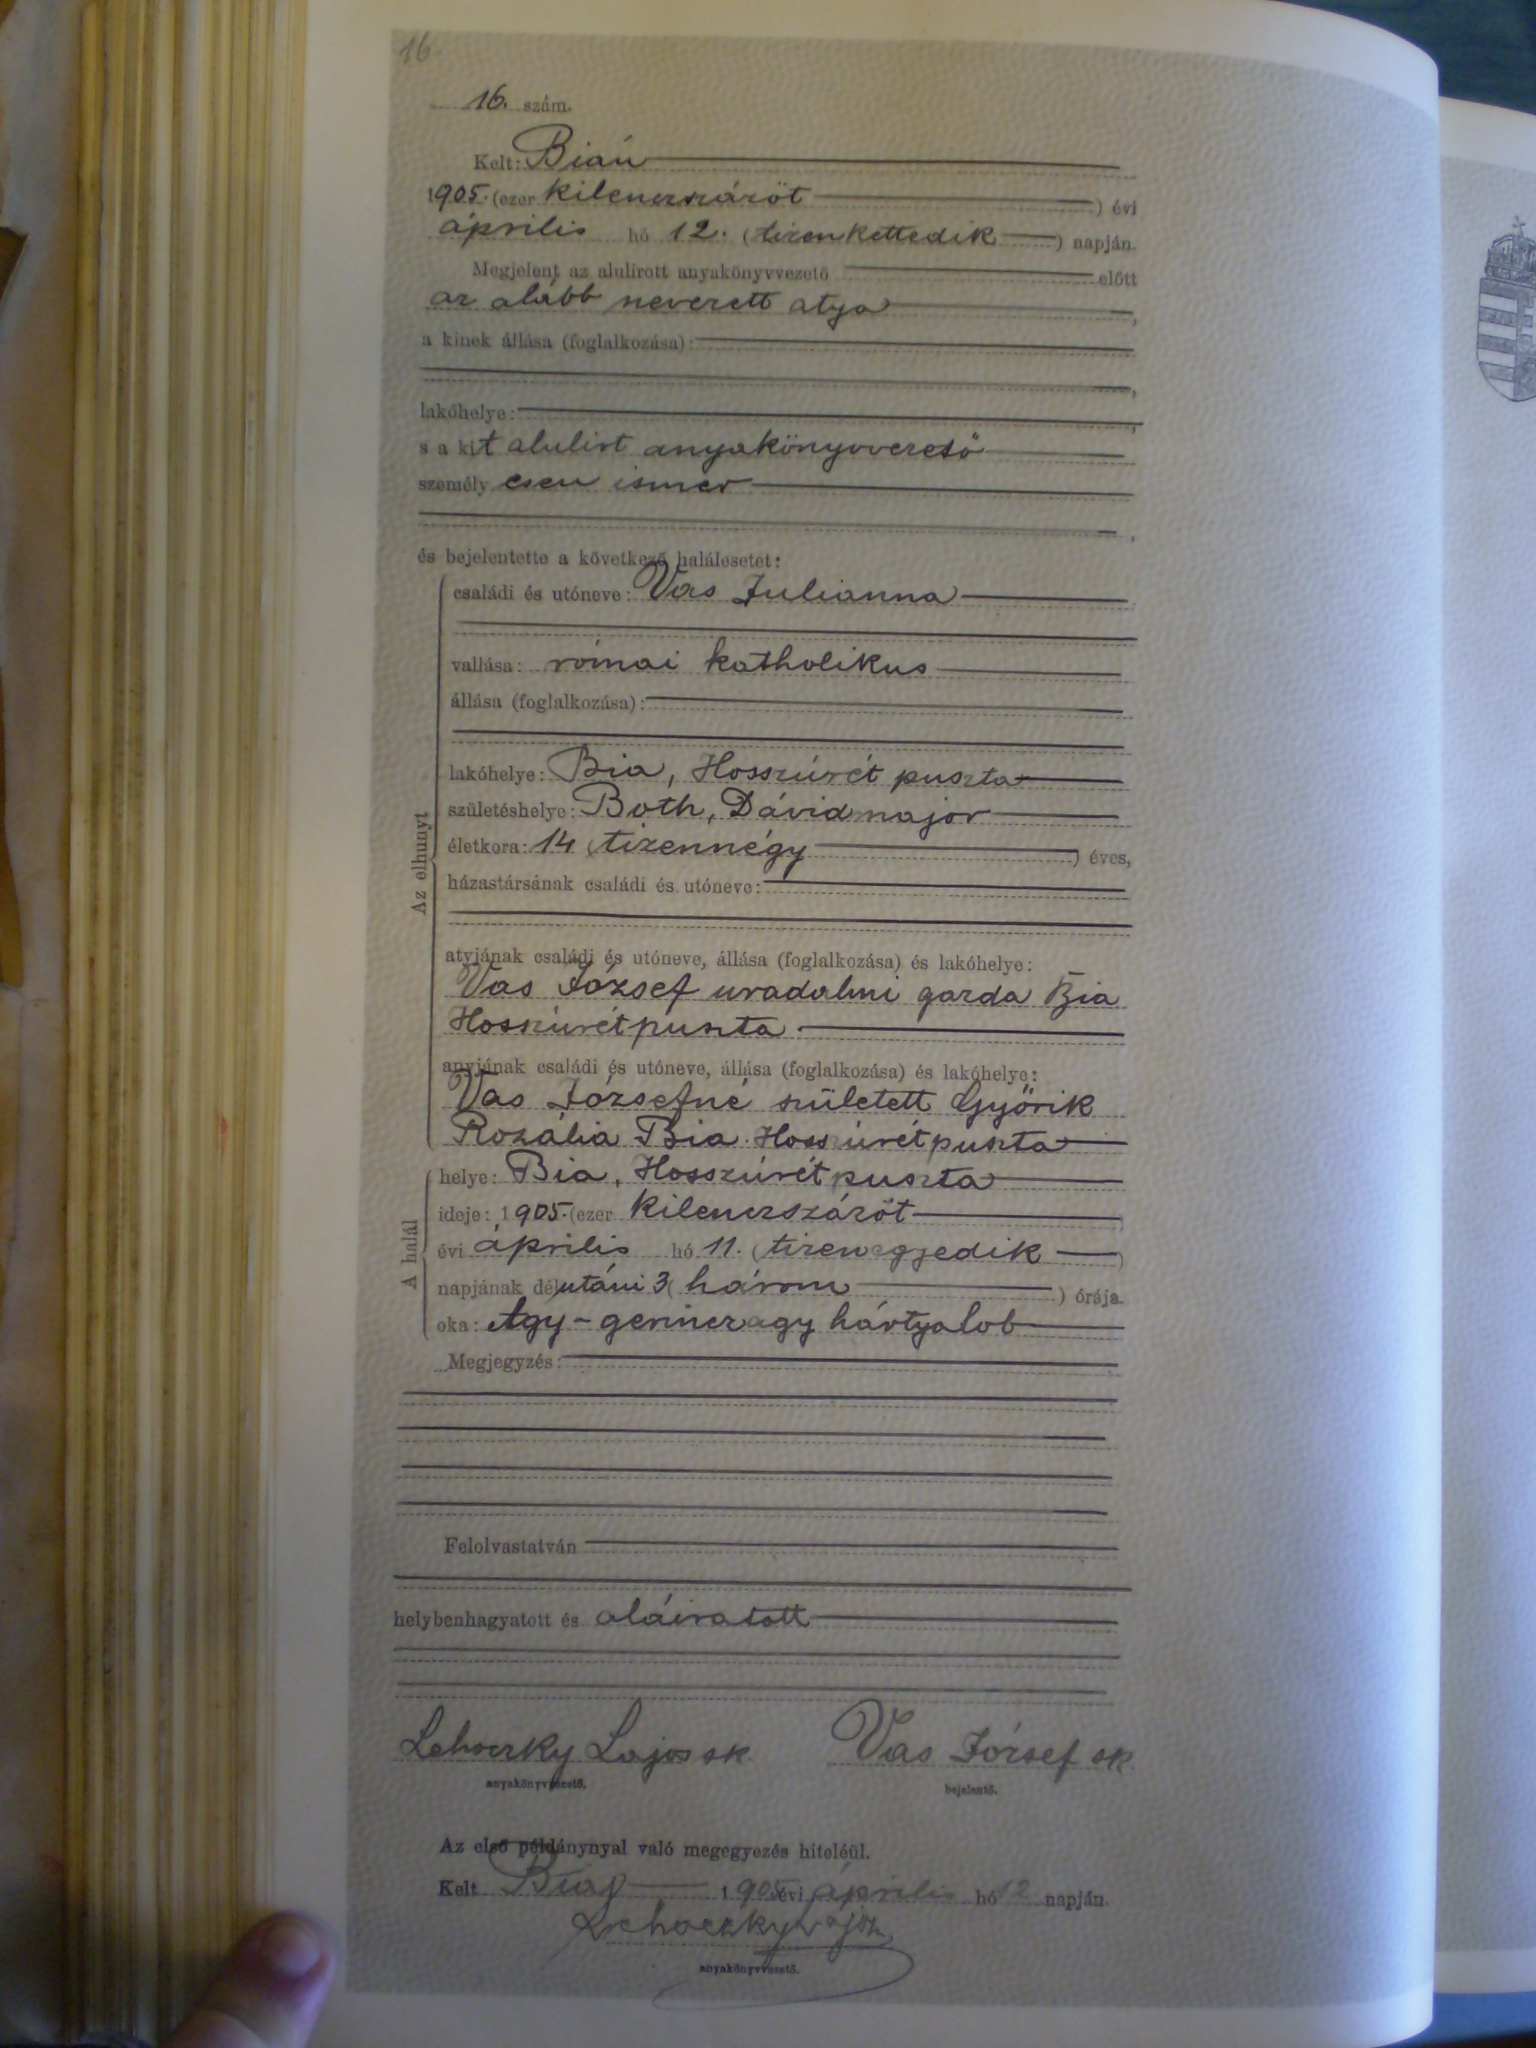 16.
16. szám.
Kelt: Bián
1905. (ezer kilenczszázöt) évi
április hó 12. (tizenkettedik) napján.
Megjelent az alulirott anyakönyvvezető előtt
az alább nevezett atya,
a kinek állása (foglalkozása):
,
lakóhelye:
,
s a kit alulirt anyakönyvvezető
személyesen ismer
,
és bejelentette a következő halálesetet:
Az elhunyt
családi és utóneve: Vas Julianna
vallása: római katholikus
állása (foglalkozása):
lakóhelye: Bia, Hosszúrét puszta
születéshelye: Both, Dávidmajor
életkora: 14 (tizennégy) éves,
házastársának családi és utóneve:
atyjának családi és utóneve, állása (foglalkozása) és lakóhelye:
Vas József uradalmi gazda Bia
Hosszúrétpuszta
anyjának családi és utóneve, állása (foglalkozása) és lakóhelye:
Vas Józsefné született Győrik
Rozália Bia Hosszúrétpuszta
A halál
helye: Bia, Hosszúrétpuszta
ideje: 1905. (ezer kilenczszázöt
évi április hó 11. (tizenegyedik)
napjának délutáni 3 (három) órája.
oka: Agy-gerinczagy hártyalob
Megjegyzés:
Felolvastatván
helybenhagyatott és aláiratott
Lehoczky Lajos sk Vas József sk
anyakönyvvezető. bejelentő.
Az első példánynyal való megegyezés hiteléül.
Kelt Bián 1905 évi április hó 12 napján.
Lehoczky Lajos
anyakönyvvezető.